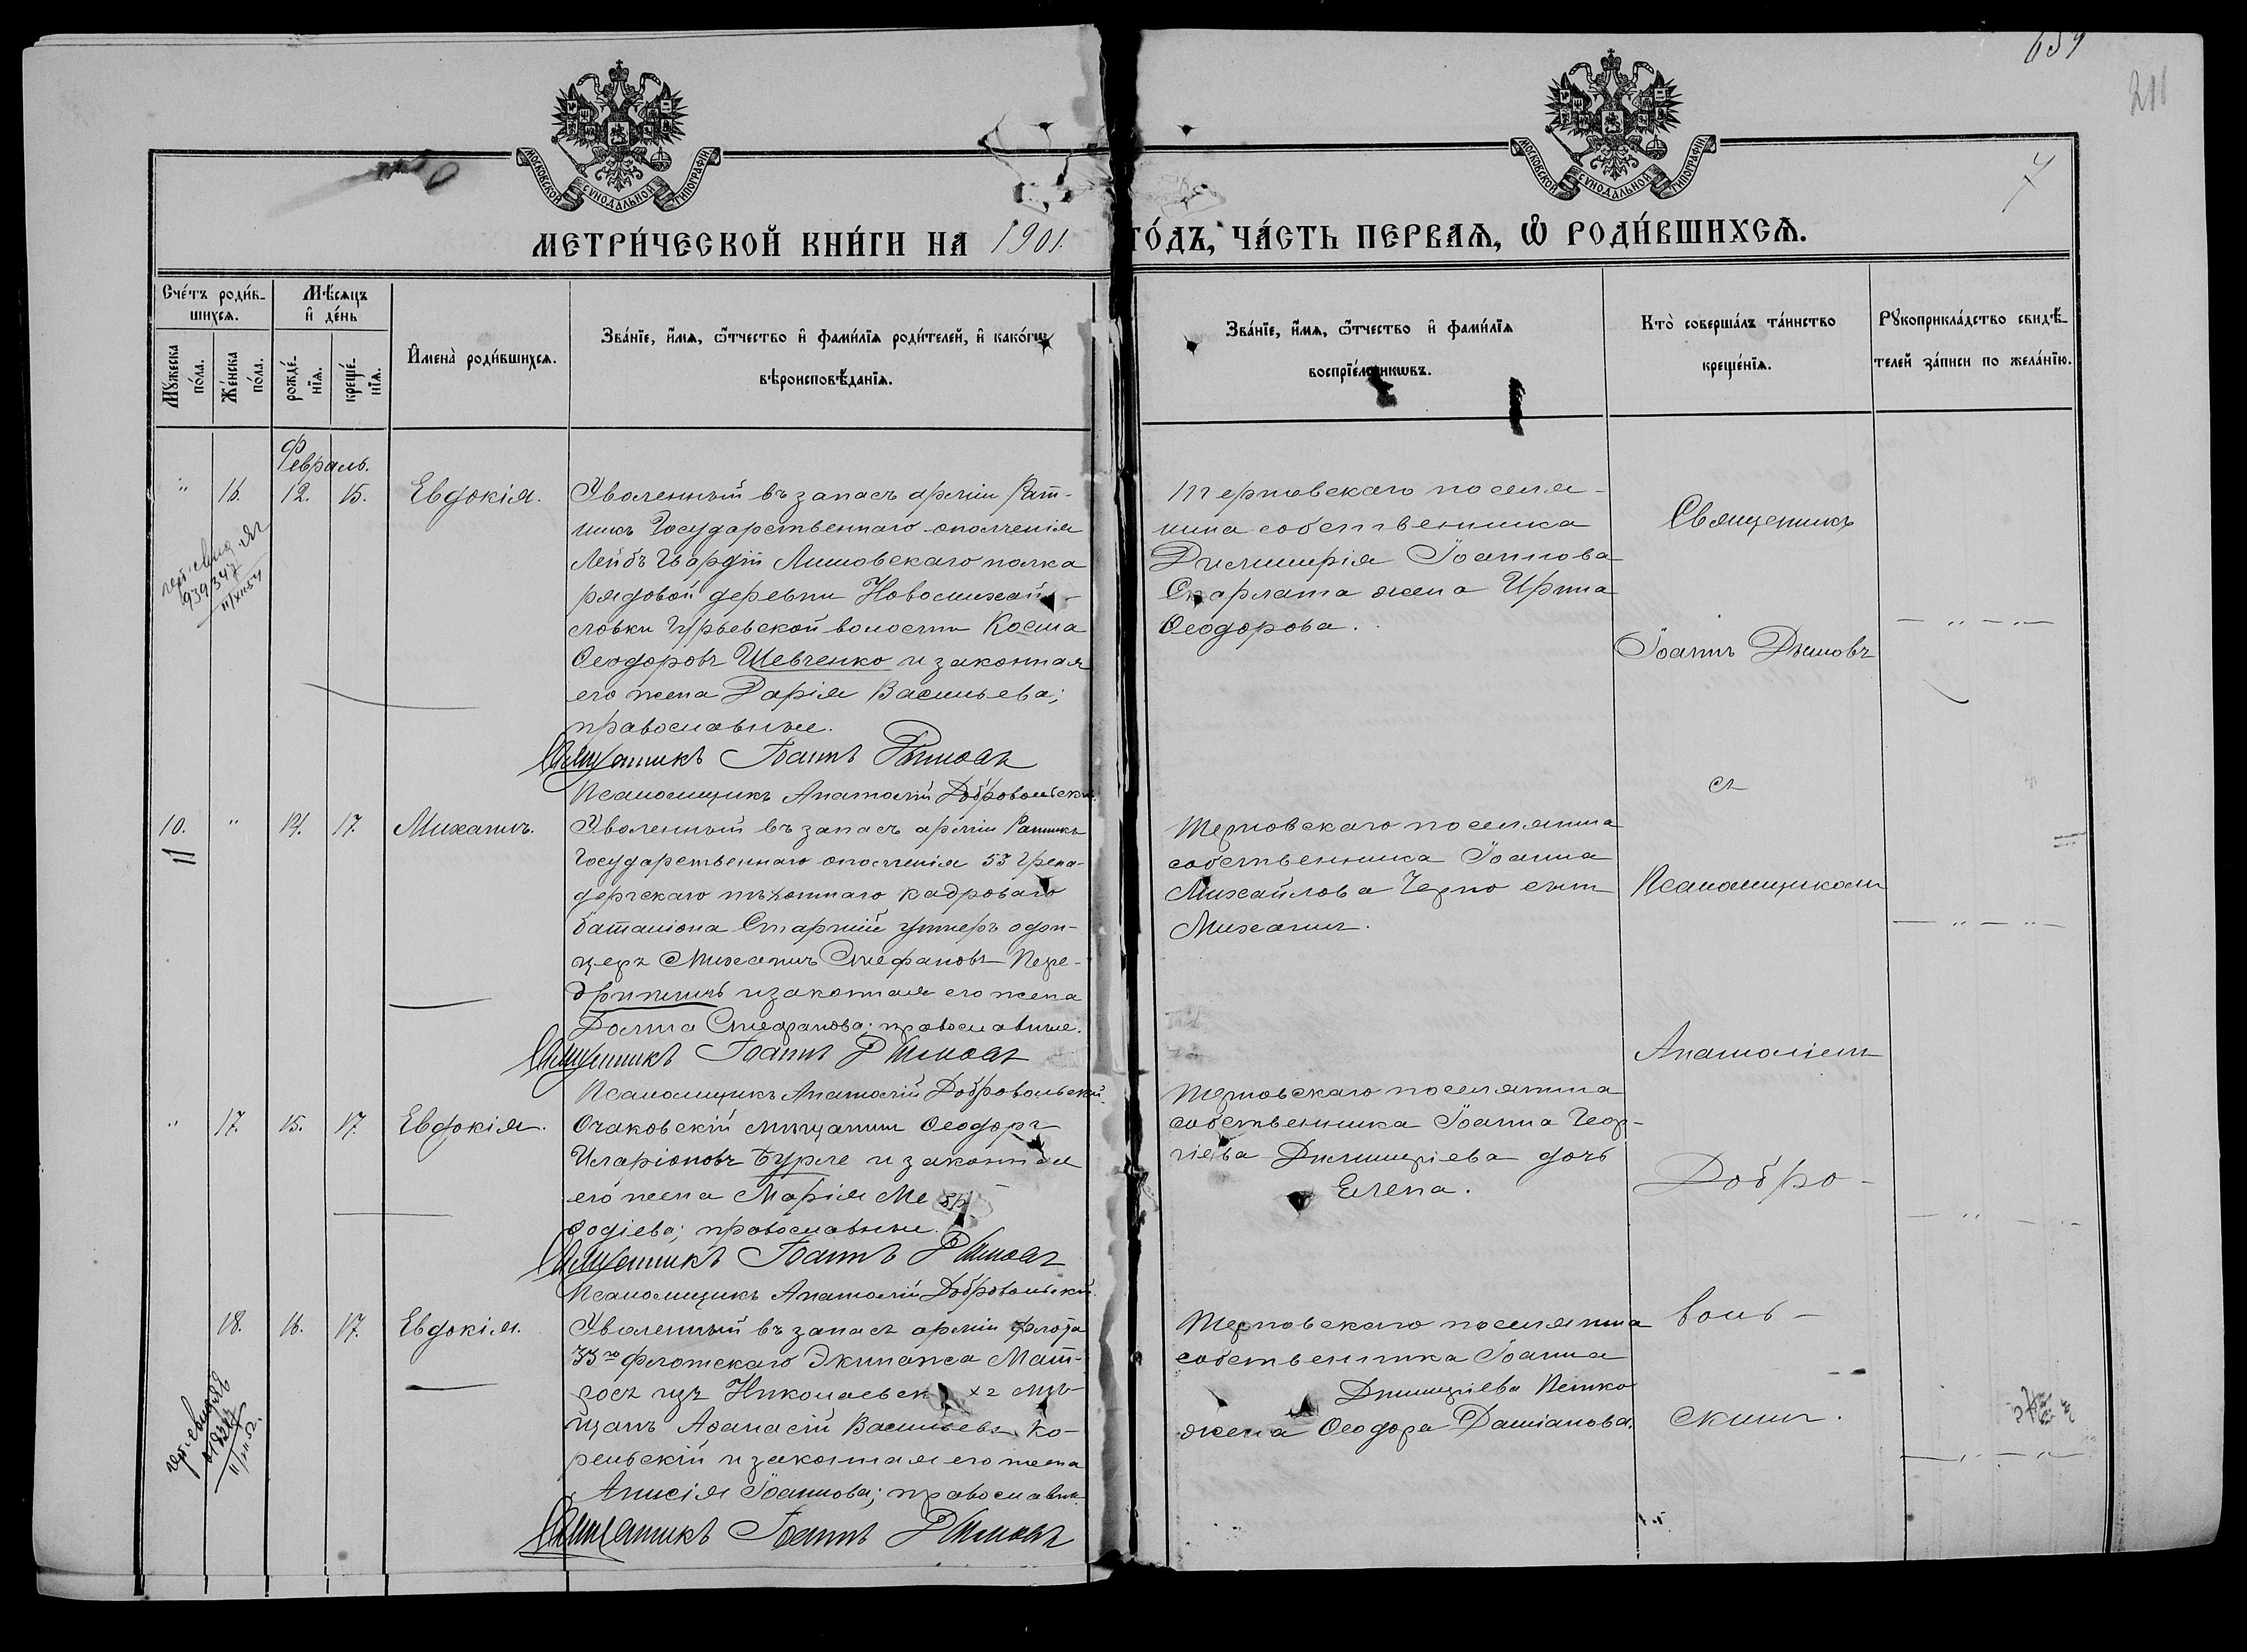 654
211
7
МОСКОВСКОЙ СѴНОДАЛЬНОЙ ТИПОГРАФІИ
МОСКОВСКОЙ СѴНОДАЛЬНОЙ ТИПОГРАФІИ
МЕТРИ́ЧЕСКОЙ КНИ́ГИ НА 1901. ГО́ДЪ, ЧА́СТЬ ПЕРВАѦ, Ѽ РОДИ́ВШИХСѦ.
Сче́тъ роди́в-
шихсѧ.
Мꙋжеска по́ла.
Же́нска по́ла.
Мѣ́сѧцъ
и҆ де́нь
рожде́-
нїѧ.
креще́-
нїѧ.
И҆мена̀ роди́вшихсѧ.
Зва́нїе, и҆́мѧ, ѻ҆́тчество и҆ фами́лїѧ роди́телей, и҆ како́гѡ
вѣроисповѣ́данїѧ.
Зва́нїе, и҆́мѧ, ѻ҆́тчество и҆ фами́лїѧ
воспрїе́мникѡвъ.
Кто̀ соверша́лъ та́инство
креще́нїѧ.
Рꙋкоприкла́дство свидѣ́-
телей за́писи по жела́нїю.
Февраль.
" 16. 12. 15. Евдокія.
Уволенный въ запасъ арміи Рат-
никъ Государственнаго ополченія
Лейбъ Гвардіи Литовскаго полка
рядовой деревни Новомихай-
ловки Гурьевской волости Косма
Ѳеодоровъ Шевченко и законная
его жена Дарія Васильева;
православные.
Священникъ Іоаннъ Дымовъ
Псаломщикъ Анатолій Добровольскій.
Терновскаго поселя-
нина собственника
Димитрія Іоаннова
Скарлата жена Ирина
Ѳеодорова.
Священникъ
Іоаннъ Дымовъ
939347
11/XII 54
10. " 14. 17. Михаилъ.
11
Уволенный въ запасъ арміи Ратникъ
Государственнаго ополченія 53 Грена-
дерскаго пѣхотнаго кадроваго
баталіона Старшій унтеръ офи-
церъ Михаилъ Стефановъ Пере-
и законная его жена
Домна Стефанова; православные.
Священникъ Іоаннъ Дымовъ
Псаломщикъ Анатолій Добровольскій.
Терновскаго поселянина
собственника Іоанна
Михайлова Черно сынъ
Михаилъ.
съ
Псаломщикомъ
Анатоліемъ
" 17. 15. 17. Евдокія.
Очаковскій мѣщанинъ Ѳеодоръ
Иларіоновъ Бурле и законная
его жена Марія Ме
ѳодіева; православные.
Священникъ Іоаннъ Дымовъ
Псаломщикъ Анатолій Добровольскій.
Терновскаго поселянина
собственника Іоанна Геор-
гіева Димитріева дочь
Елена.
Добро-
18. 16. 17. Евдокія.
Уволенный въ запасъ арміи флота
33го флотскаго Экипажа Мат-
росъ изъ Николаевскихъ мѣ-
щанъ Аѳанасій Васильевъ Ко-
рельскій и законная его жена
Анисія Іоаннова; православные
Священникъ Іоаннъ Дымовъ
Терновскаго поселянина
собственника Іоанна
Димитріева Петко
жена Ѳеодора Даміанова.
воль-
скимъ.